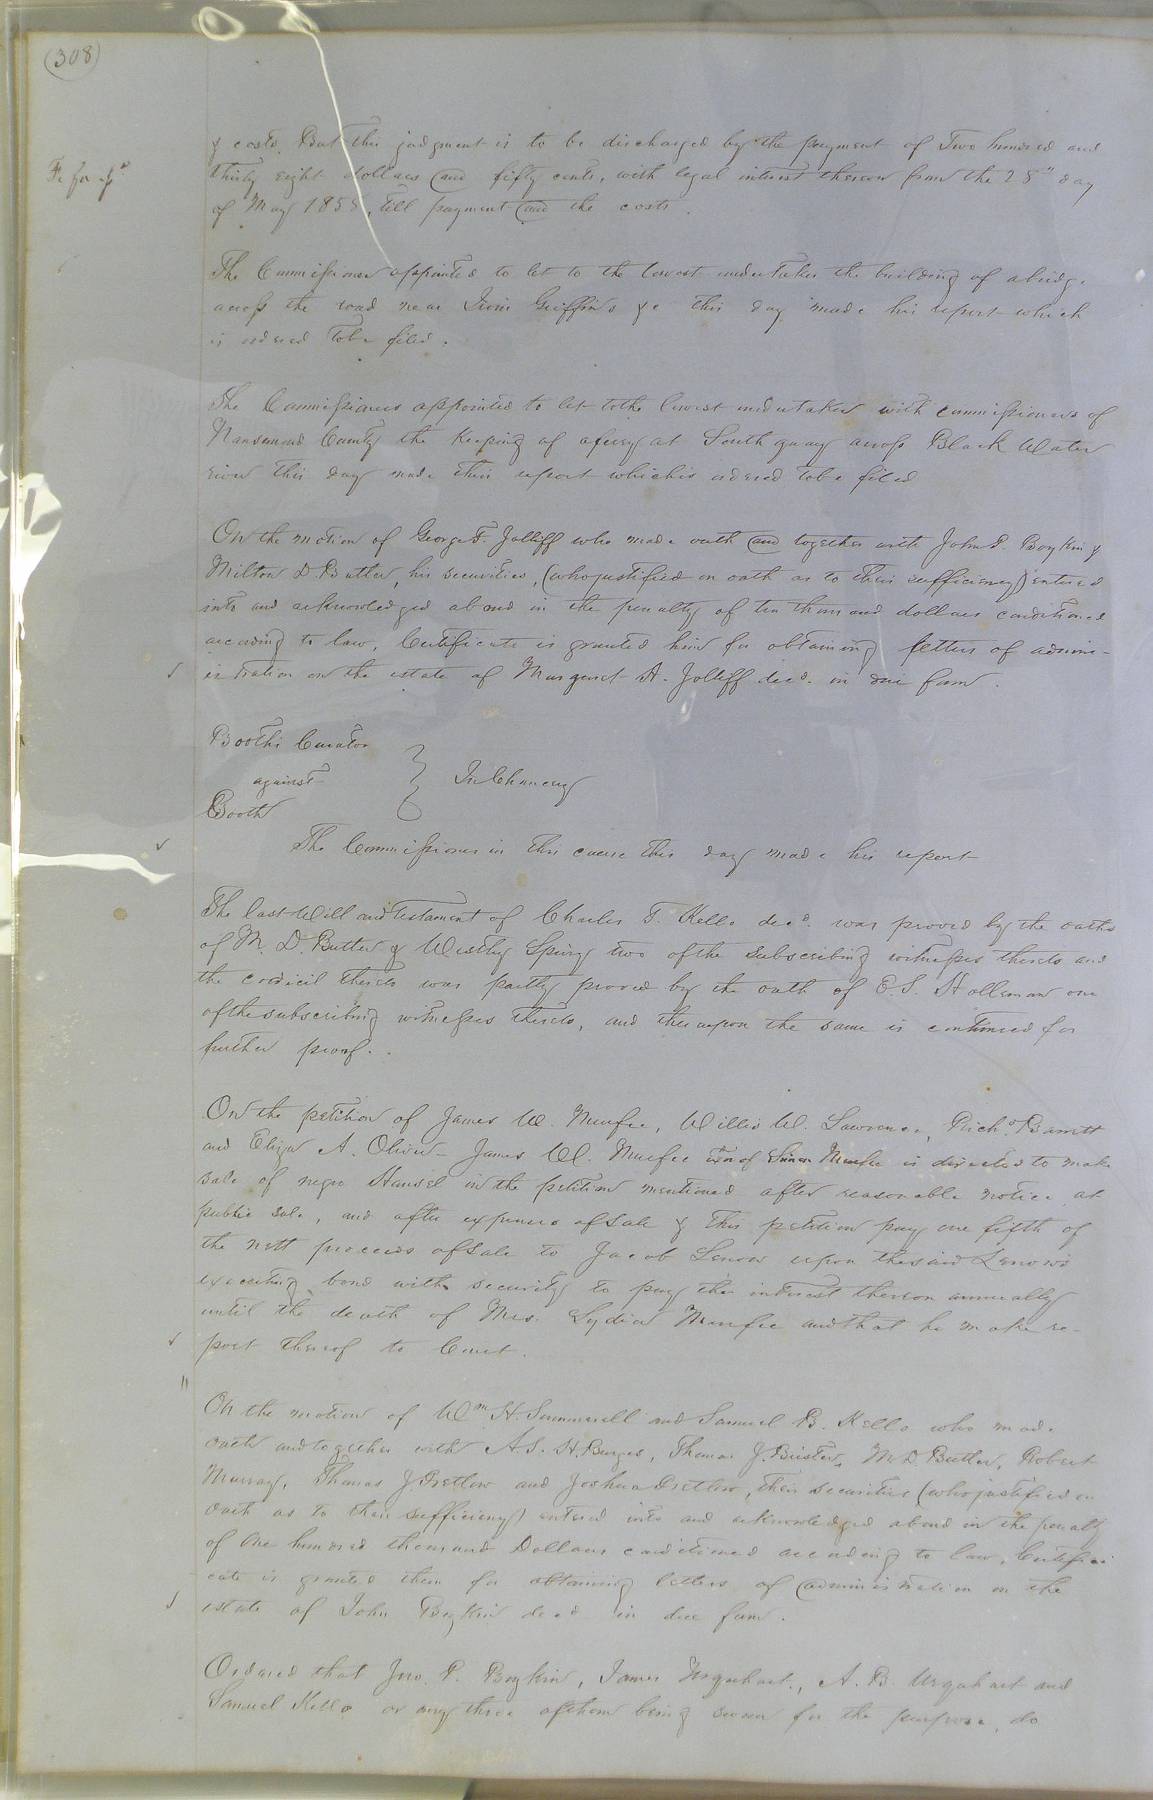 (308)
& costs. But this judgment is to be discharged by the payment of Two hundred and
Fi fa
thirty eight dollars and fifty cents, with legal interest thereon from the 25th day
of May 1855, till payment and the costs.
The Commissioner appointed to let to the lowest undertaker the building of a bridge
across the road near Griffin's &c this day made his report which
is ordered to be filed.
The Commissioners appointed to let to the lowest undertaker with commissioners of
Nansemond County the keeping of a ferry at South quay across Black Water
river this day made their report which is ordered to be filed
On the motion of George F. Jolliff who made oath and together with John P. Boykin &
Milton D. Butler, his securities, (who justified on oath as to their sufficiency) entered
into and acknowledged a bond in the penalty of ten thousand dollars conditioned
according to law, Certificate is granted him for obtaining letters of admin-
istration on the estate of Margaret A. Jolliff decd. in due form.
Booth's Curator
against } In Chancery
Booth
The Commissioner in this cause this day made his report
The last Will and Testament of Charles F. Kello decd. was proved by the oaths
of M. D. Butler & Westley Spivey two of the subscribing witnesses thereto and
the codicil thereto was partly proved by the oath of E. S. Holleman one
of the subscribing witnesses thereto, and thereupon the same is continued for
further proof.
On the petition of James W. Murfee, Willis W. Lawrence, Richd. Barrett
and Eliza A. Oliver - James W. Murfee of Simon Murfee is directed to make
sale of negro Hansel in the petition mentioned after reasonable notice at
public sale, and after expenses of sale & this petition pay one fifth of
the nett proceeds of sale to Jacob Lenow upon the said Lenow's
executing bond with security to pay the interest thereon annually
until the death of Mrs. Lydia Murfee and that he make re-
port thereof to Court.
On the motion of Wm H. Summerell and Samuel B. Kello who made
oath and together with A. S. H. Burges, Thomas J. Brister, M. D. Butler, Robert
Murray, Thomas J. Pretlow and Joshua Pretlow, their securities (who justified on
oath as to their sufficiency) entered into and acknowledged a bond in the penalty
of One hundred thousand Dollars conditioned according to law, Certifi-
cate is granted them for obtaining letters of administration on the
estate of John Boykin decd in due form.
Ordered that Jno. P. Boykin, James Urquhart, A. B. Urquhart and
Samuel Kello or any three of them being sworn for the purpose, do